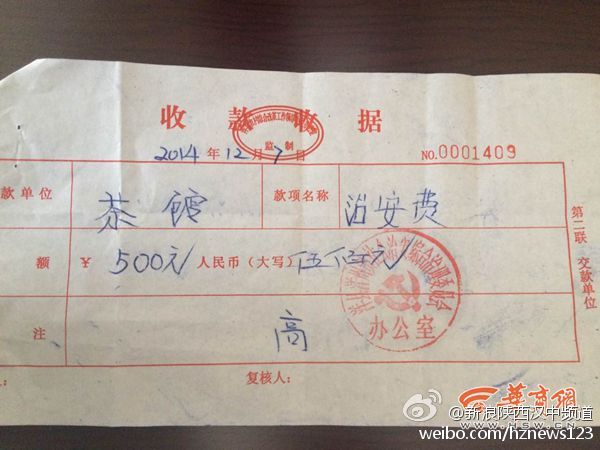 收款收据
监制
2014年12月7日
NO.0001409
款单位
茶馆
款项名称
治安费
额
¥500元
人民币(大写)
伍佰元
办公室
注
高
复核人:
第二联 交款单位
华商网
WWW.HSW.CN
@新浪陕西汉中频道
weibo.com/hznews123